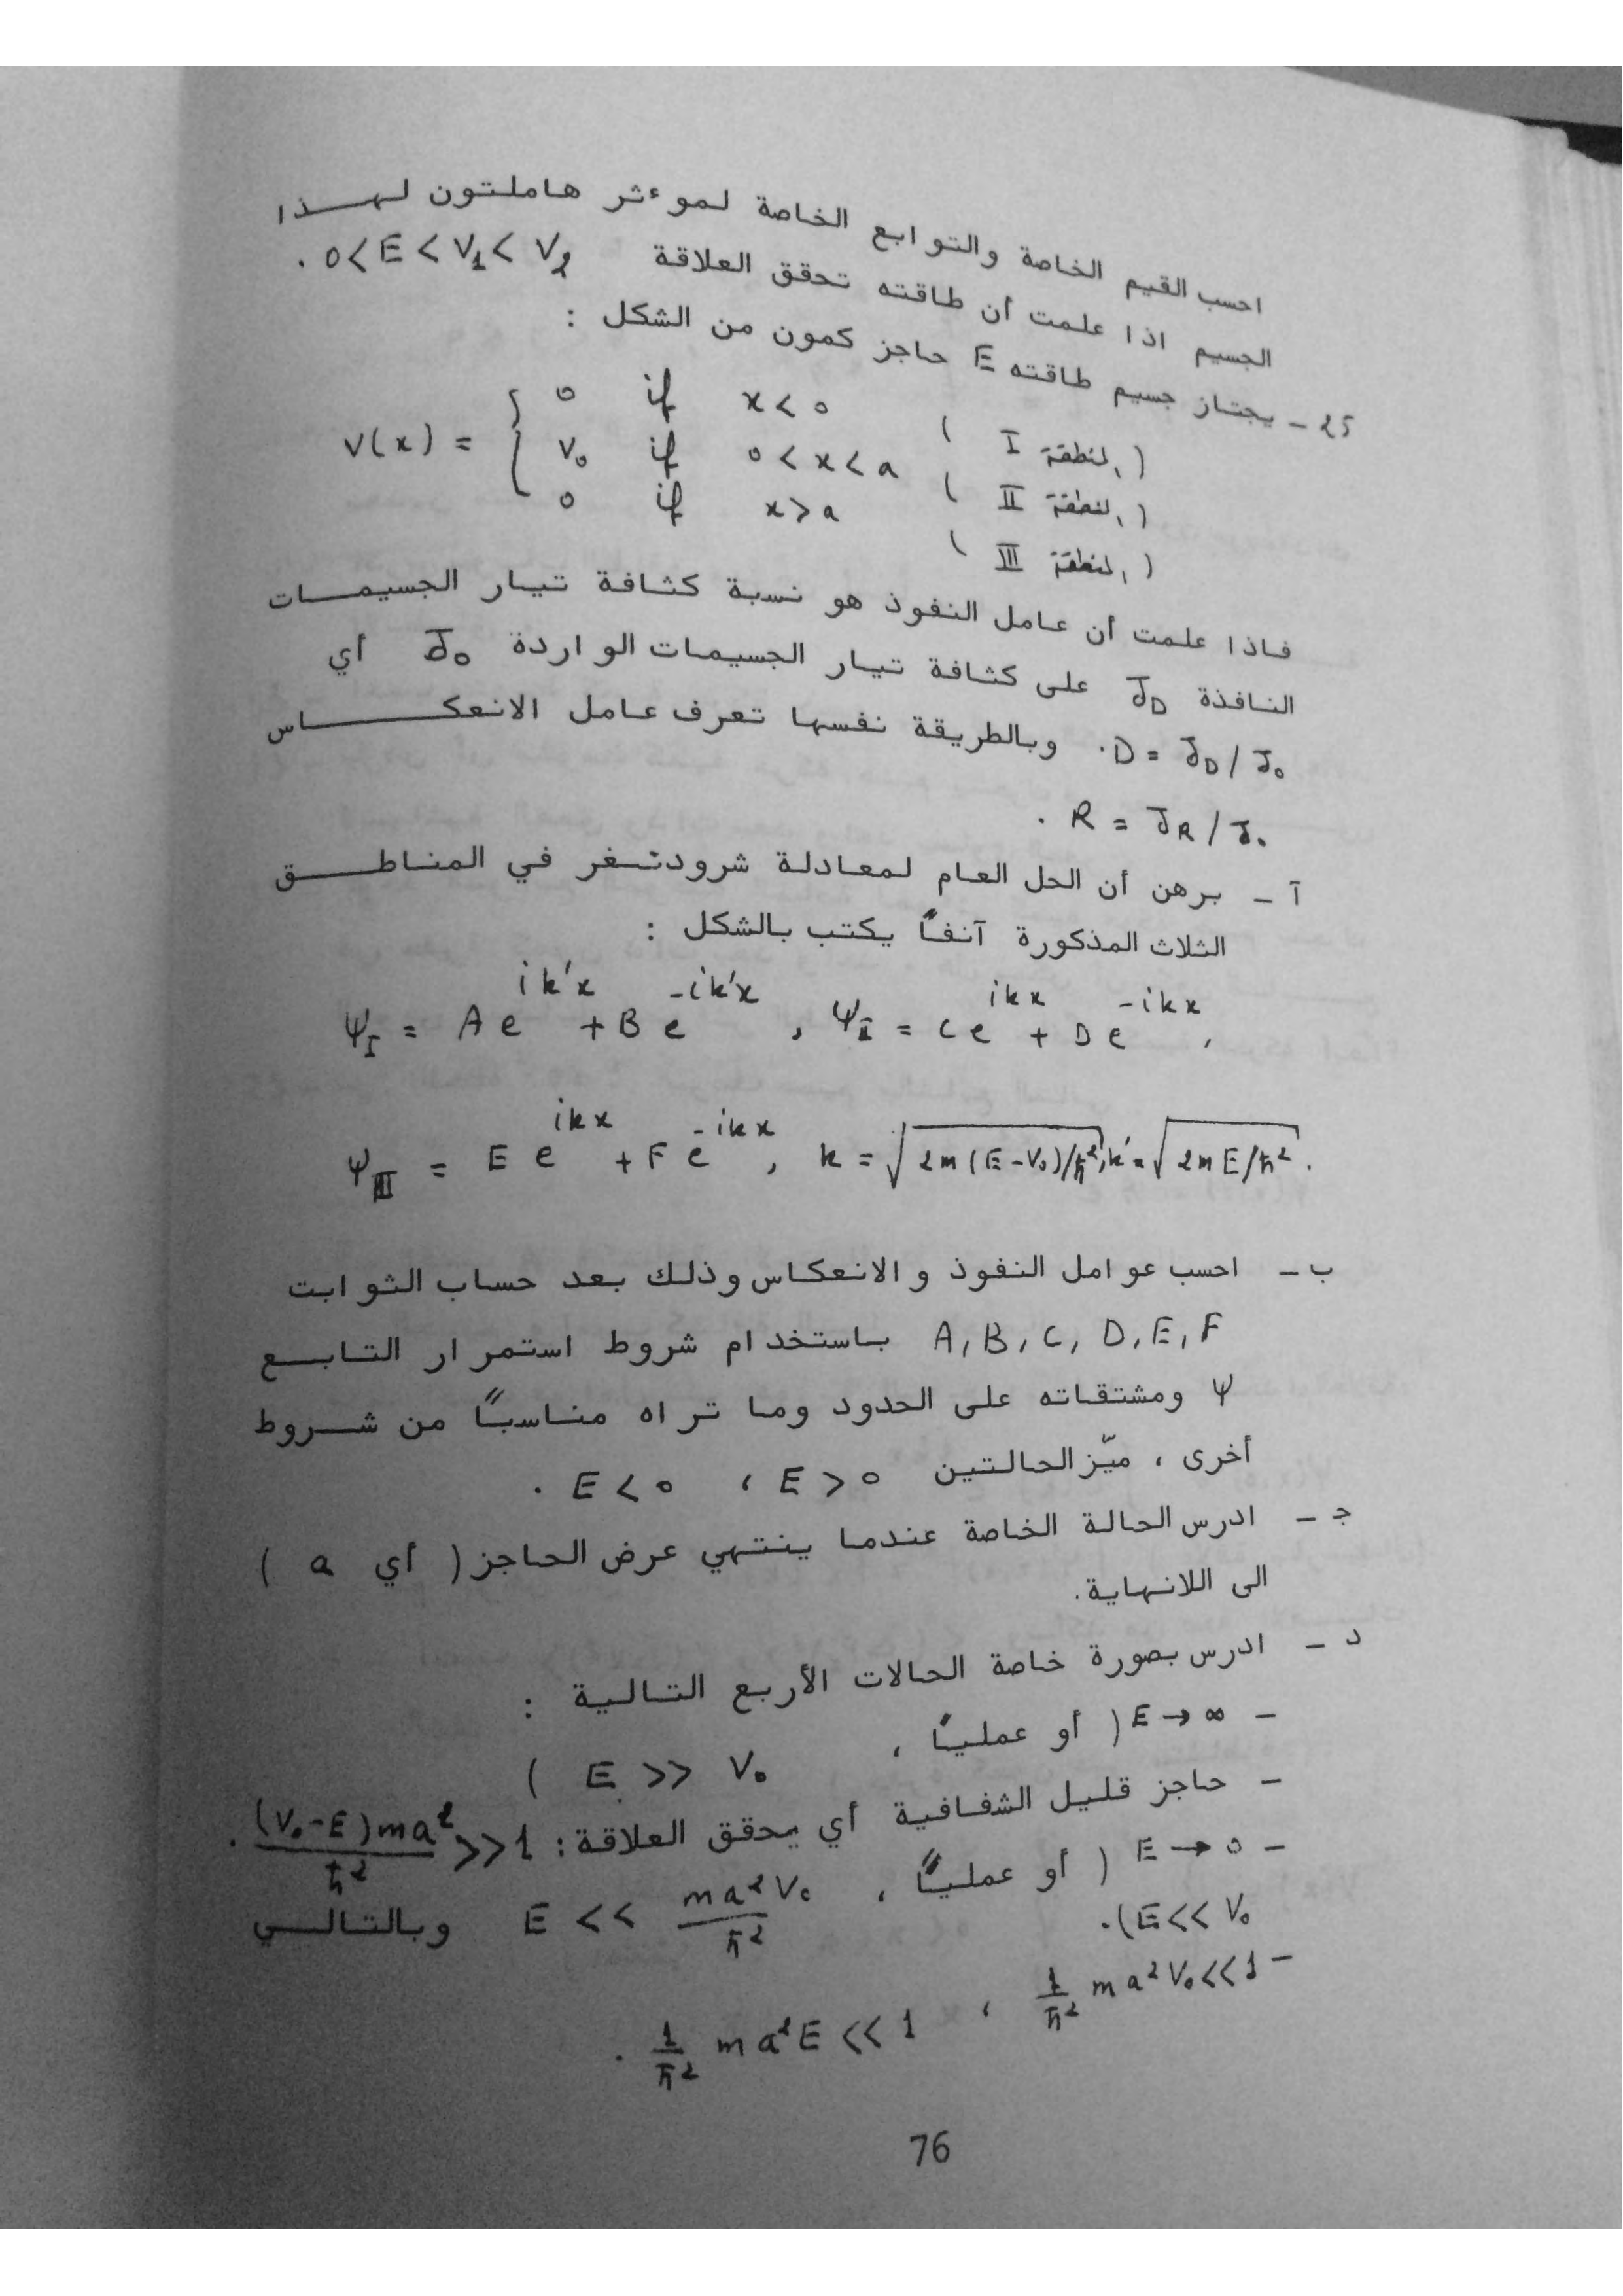 احسب القيم الخاصة والتوابع الخاصة لموءثر هاملتون لهذا
الجسيم اذا علمت أن طاقته تحقق العلاقة 0 < E < V₁ < V₂ .
25 - يجتاز جسيم طاقته E حاجز كمون من الشكل :
V(x) = { 0 if x < 0 (المنطقة I)
V₀ if 0 < x < a (المنطقة II)
0 if x > a (المنطقة III)
فاذا علمت أن عامل النفوذ هو نسبة كثافة تيار الجسيمات
النافذة J_D على كثافة تيار الجسيمات الواردة J₀ أي
D = J_D / J₀ . وبالطريقة نفسها تعرف عامل الانعكاس
R = J_R / J₀ .
آ - برهن أن الحل العام لمعادلة شرودنغر في المناطق
الثلاث المذكورة آنفاً يكتب بالشكل :
ψ_I = A e^{ik'x} + B e^{-ik'x} , ψ_II = C e^{ikx} + D e^{-ikx} ,
ψ_III = E e^{ikx} + F e^{-ikx} , k = √(2m(E-V₀)/ħ²) , k' = √(2mE/ħ²) .
ب - احسب عوامل النفوذ والانعكاس وذلك بعد حساب الثوابت
A, B, C, D, E, F باستخدام شروط استمرار التابع
ψ ومشتقاته على الحدود وما تراه مناسباً من شروط
أخرى ، ميّز الحالتين E > 0 ، E < 0 .
ج - ادرس الحالة الخاصة عندما ينتهي عرض الحاجز ( أي a )
الى اللانهاية .
د - ادرس بصورة خاصة الحالات الأربع التالية :
- E → ∞ ( أو عملياً ،
E >> V₀ )
- حاجز قليل الشفافية أي يحقق العلاقة : (V₀-E)ma²/ħ² >> 1 .
- E → 0 ( أو عملياً ، E << ma²V₀/ħ² وبالتالي
E << V₀ ) .
- 1/ħ² ma²V₀ << 1 ، 1/ħ² ma²E << 1 .
76